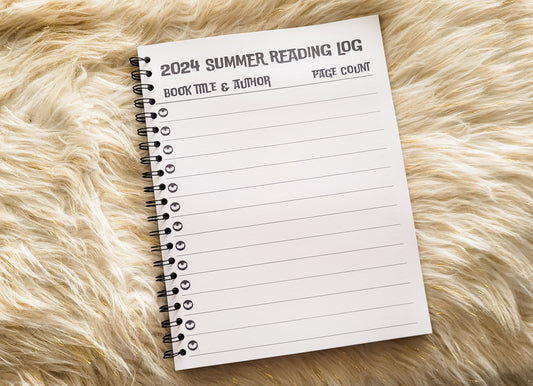 2024 SUMMER READING LOG
BOOK TITLE & AUTHOR PAGE COUNT